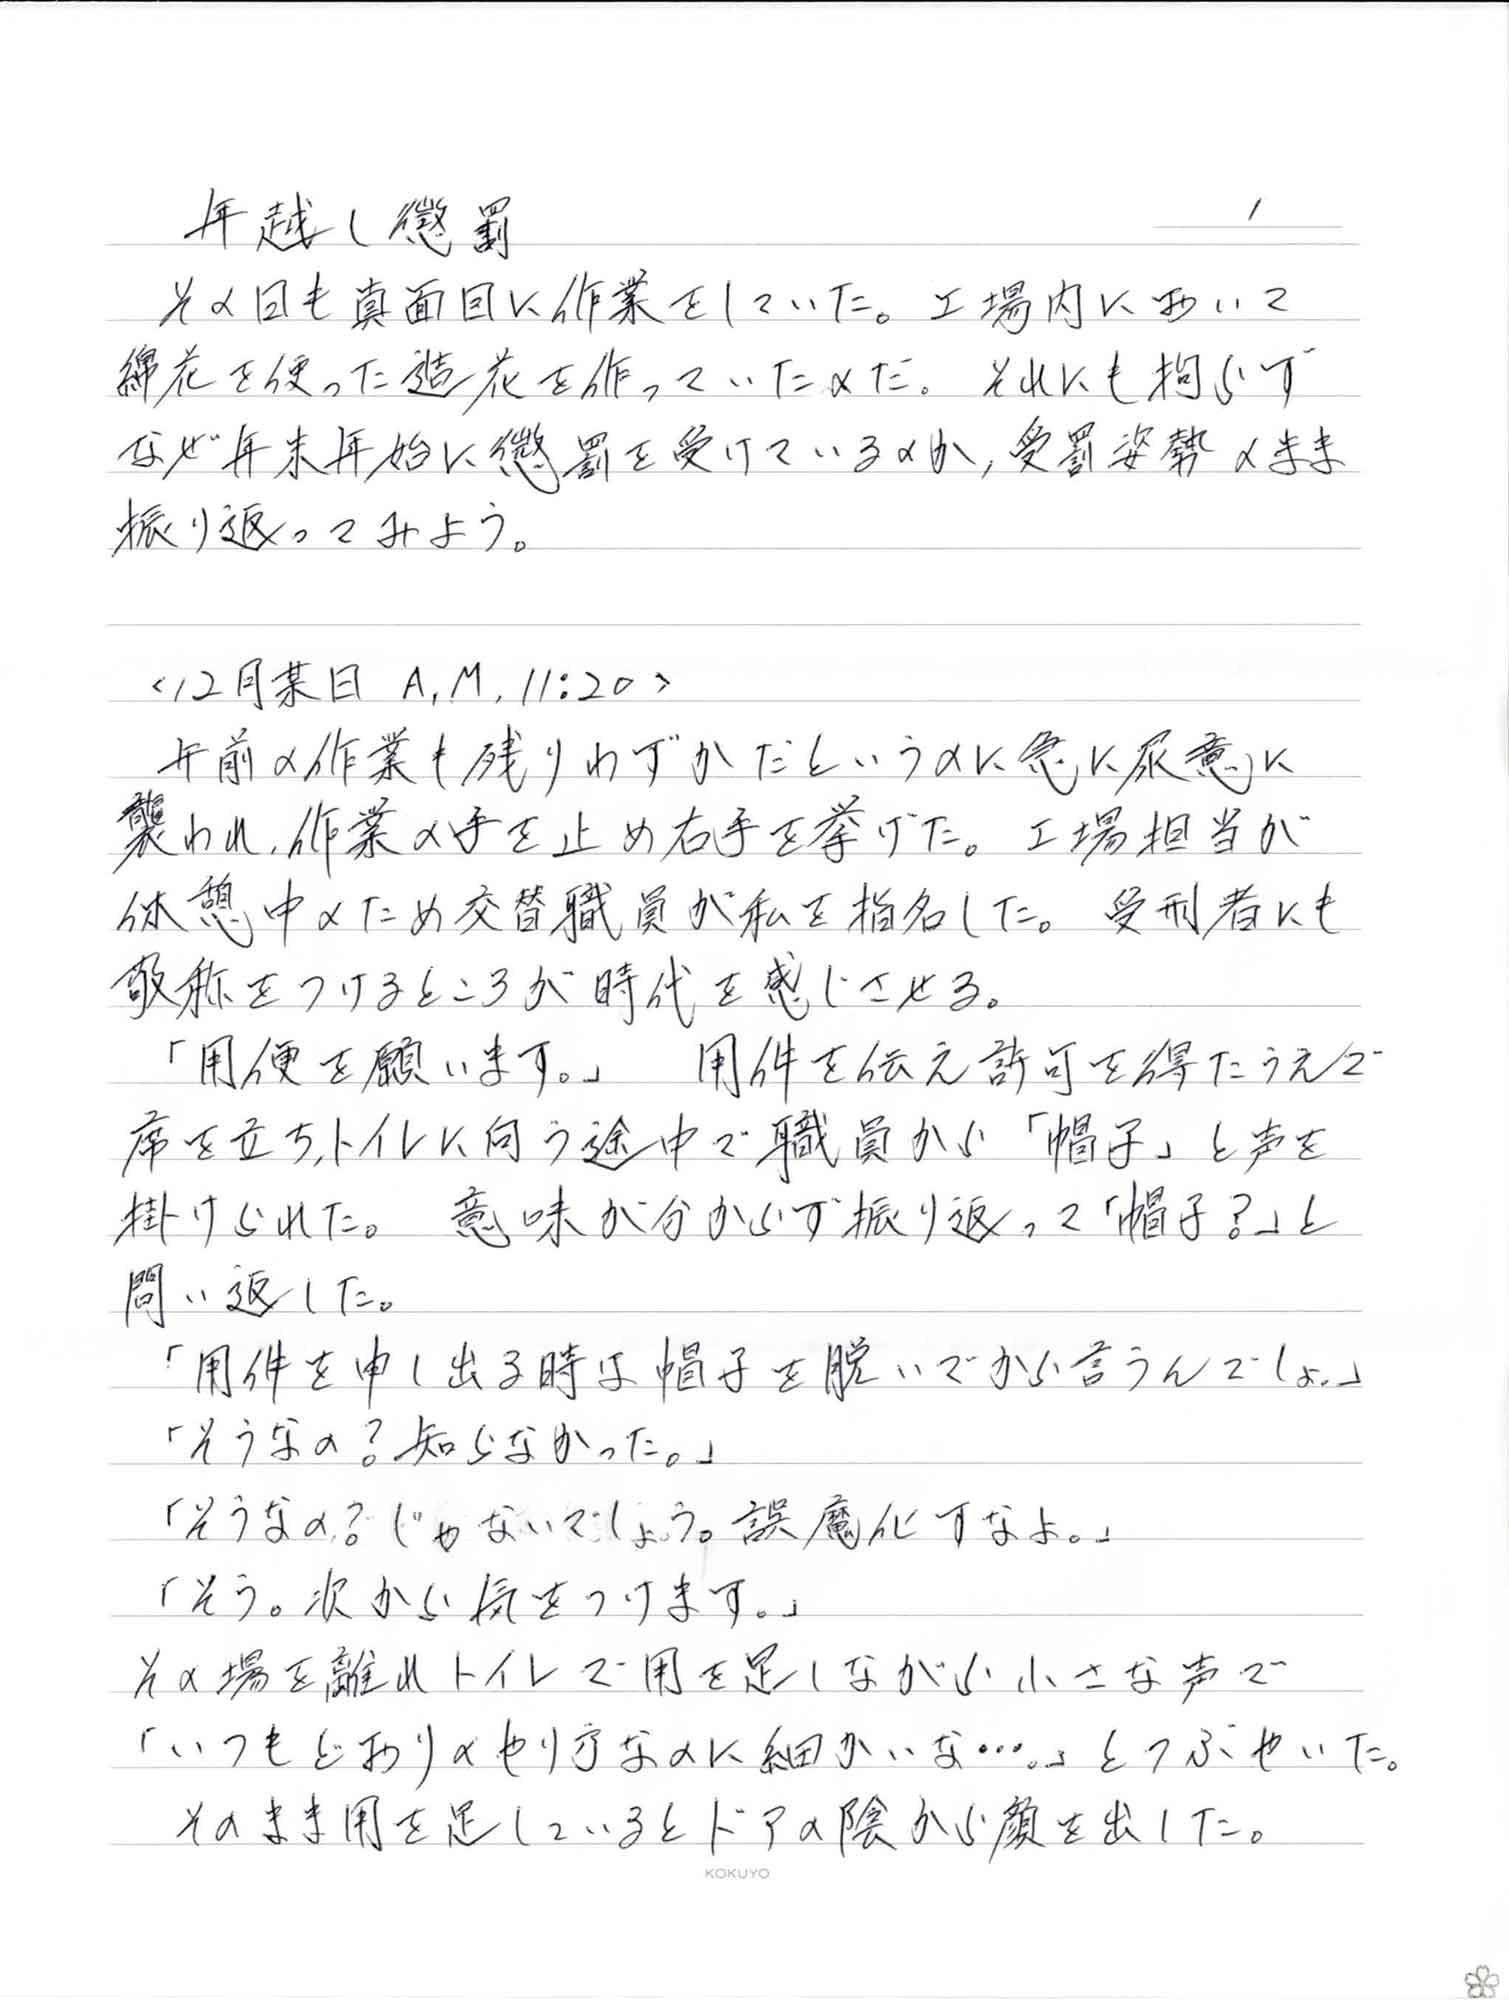 年越し懲罰
1
その日も真面目に作業をしていた。工場内において
綿花を使った造花を作っていたのだ。それにも拘らず
なぜ年末年始に懲罰を受けているのか,受罰姿勢のまま
振り返ってみよう。
<12月某日 A.M.11:20>
午前の作業も残りわずかだというのに急に尿意に
襲われ,作業の手を止め右手を挙げた。工場担当が
休憩中のため交替職員が私を指名した。受刑者にも
敬称をつけるところが時代を感じさせる。
「用便を願います。」 用件を伝え許可を得たうえで
席を立ち,トイレに向う途中で職員から「帽子」と声を
掛けられた。 意味が分からず振り返って「帽子?」と
問い返した。
「用件を申し出る時は帽子を脱いでから言うんでしょ。」
「そうなの?知らなかった。」
「そうなの?じゃないでしょう。誤魔化すなよ。」
「そう。次から気をつけます。」
その場を離れトイレで用を足しながら小さな声で
「いつもどおりのやり方なのに細かいな…。」とつぶやいた。
そのまま用を足しているとドアの陰から顔を出した。
KOKUYO